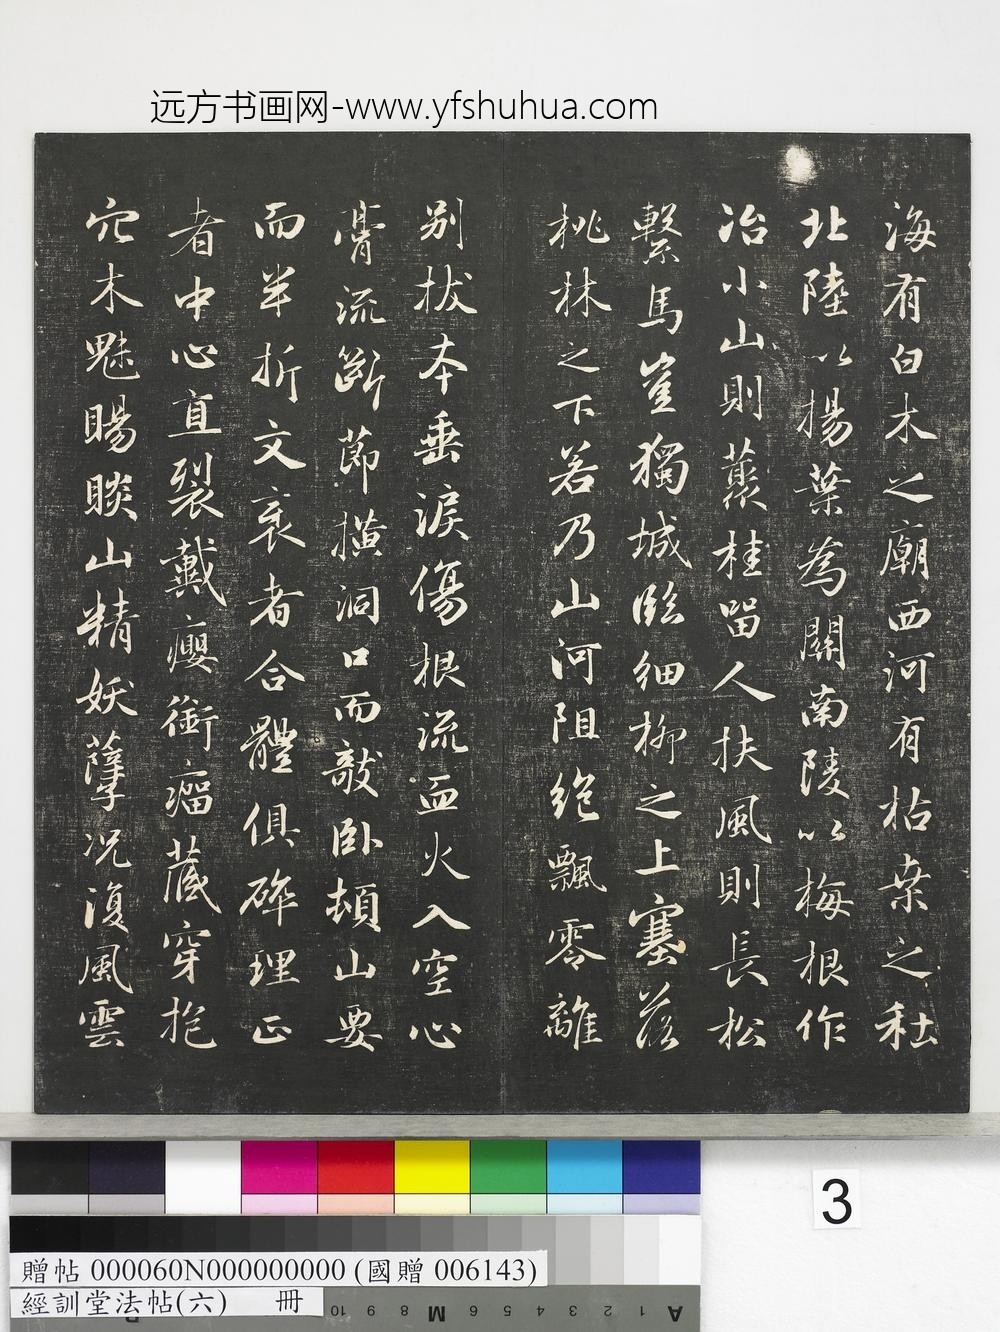 远方书画网-www.yfshuhua.com
海有白木之廟西河有枯桒之社
北陸以揚葉為關南陵以梅根作
冶小山則藂桂留人扶風則長松
繫馬豈獨城臨細柳之上塞落
桃林之下若乃山河阻絶飄零離
别拔本垂淚傷根流血火入空心
膏流斷節橫洞口而敧卧頓山要
而半折文衺者合體俱碎理正
者中心直裂戴癭銜瘤藏穿抱
穴木魅賜睒山精妖孽况復風雲
3
贈帖 000060N000000000 (國贈 006143)
經訓堂法帖(六) 冊
10 9 8 M 6 5 4 3 2 1 A